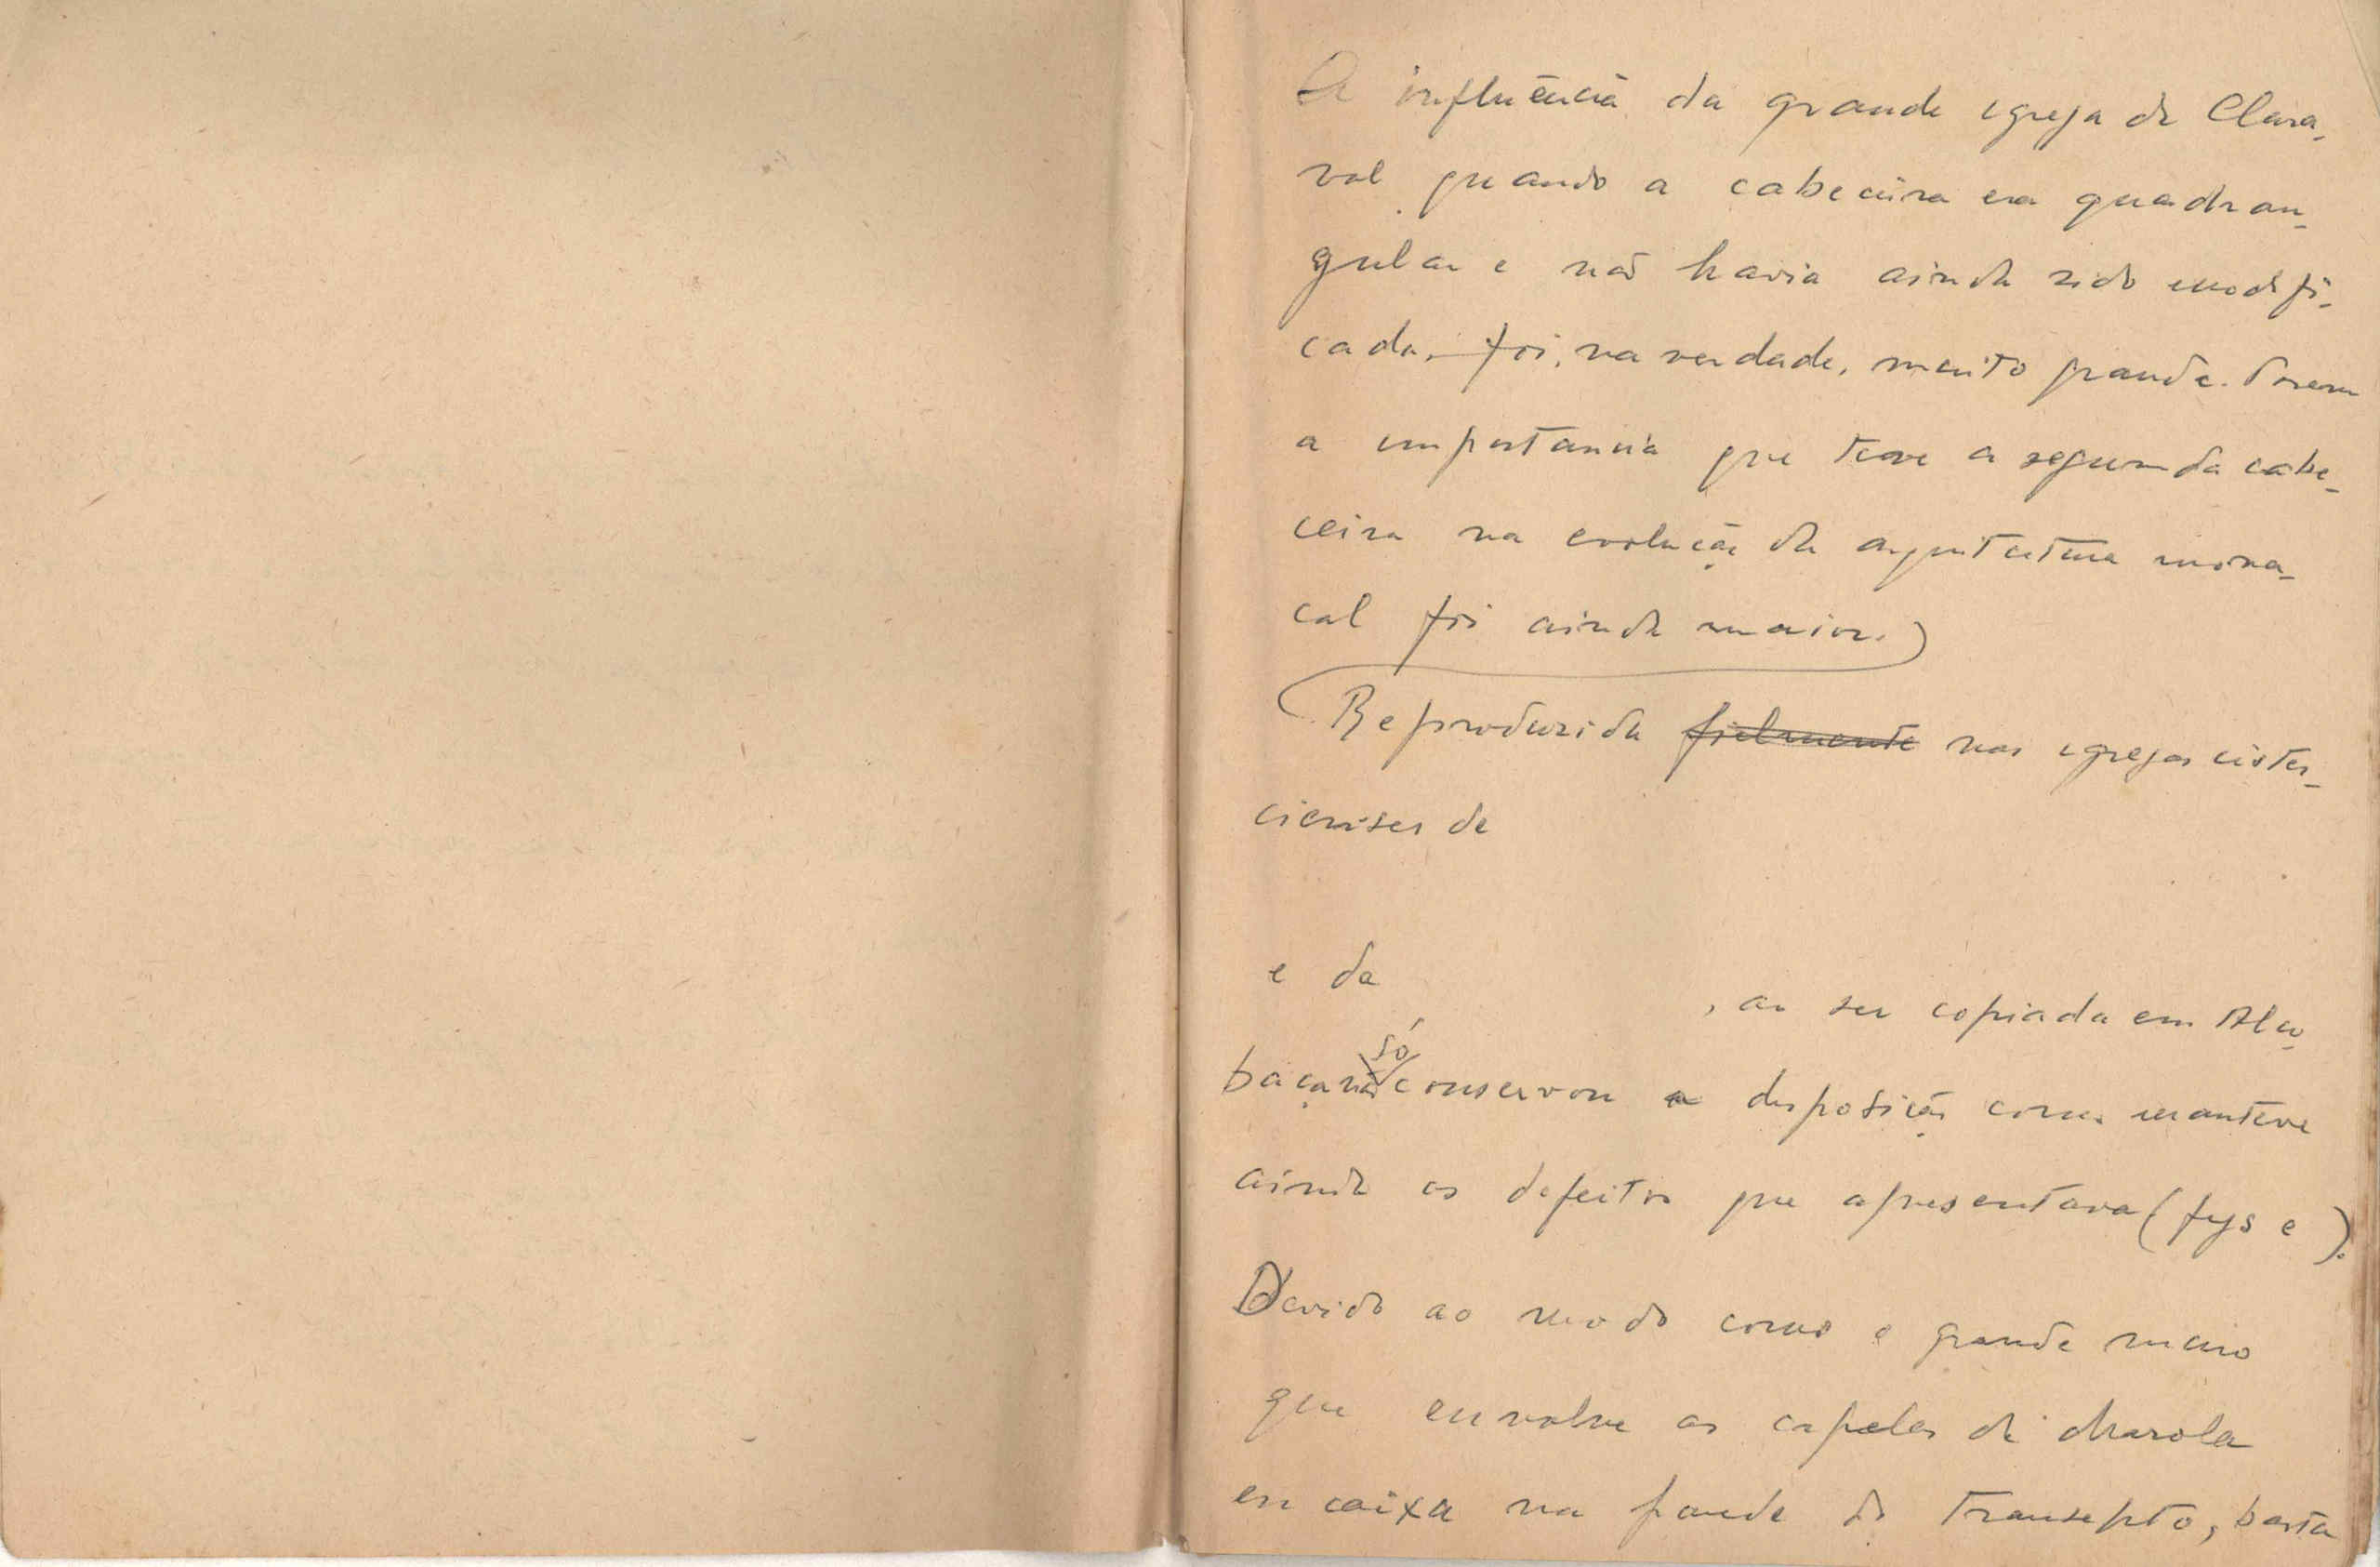 A influência da grande igreja de Clara-
val quando a cabeceira era quadran-
gular e não havia ainda sido modifi-
cada, foi, na verdade, muito grande. Porem
a importancia que teve a segunda cabe-
ceira na evolução da arquitectura mona-
cal foi ainda maior.)
(Reproduzida fielmente nas igrejas cister-
cienses de
e da
, ao ser copiada em Alco-
baça não só conservou a disposição como manteve
ainda os defeitos que apresentava (figs e ).
Devido ao modo como o grande muro
que envolve as capelas da charola
encaixa na parede do transepto, basta